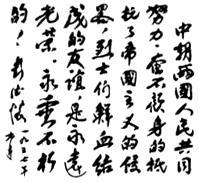 中朝兩國人民共同
努力,奮不顧身的抵
抗了帝國主义的侵
畧,烈士们鮮血結
成的友谊是永遠
光荣、永垂不朽
的!彭德怀
一九五七年